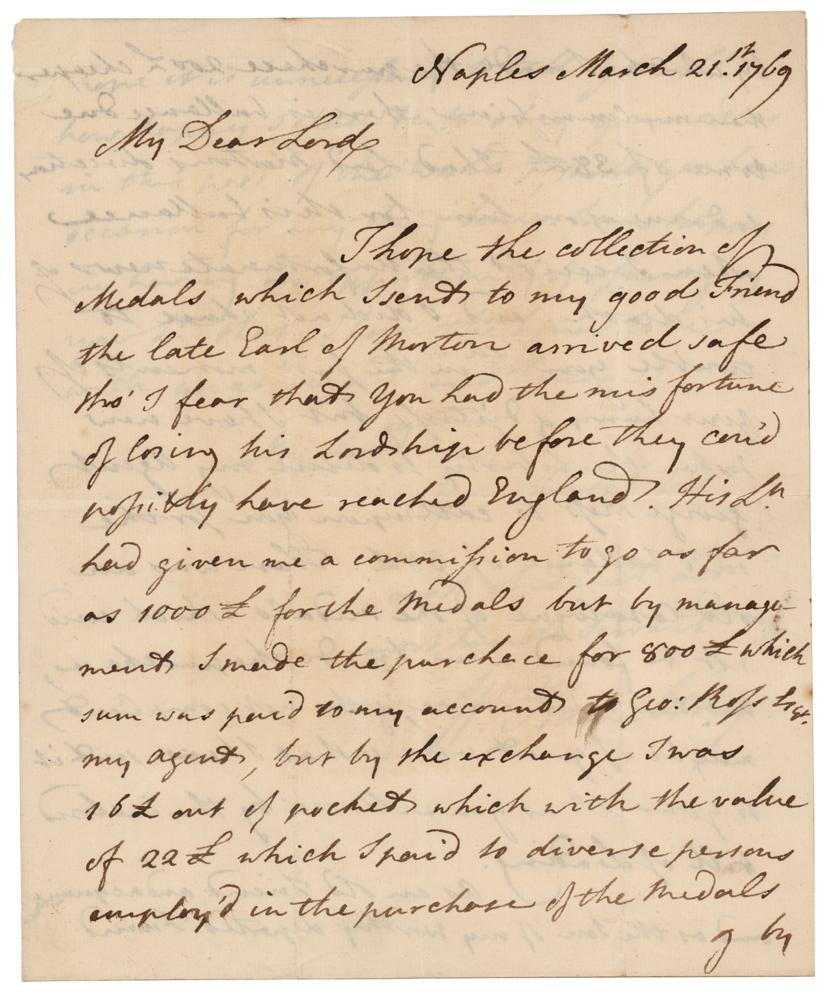 Naples March 21.st 1769
My Dear Lord
I hope the collection of
Medals which I sent to my good Friend
the late Earl of Morton arrived safe
tho' I fear that You had the misfortune
of losing his Lordship before they cou'd
possibly have reached England. His Lp.
had given me a commission to go as far
as 1000 £ for the Medals but by manage-
ment I made the purchace for 800 £ which
sum was paid to my account to Geo: Ross Esqr.
my agent, but by the exchange I was
16 £ out of pocket which with the value
of 22 £ which I paid to diverse persons
employ'd in the purchase of the Medals
by